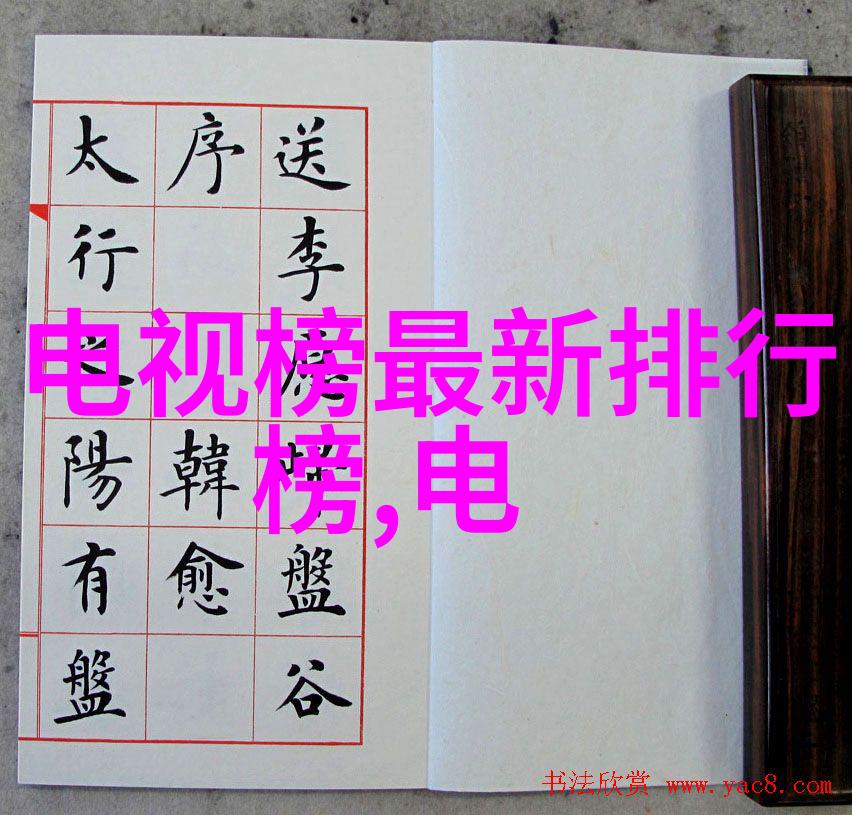 送李盤谷
序韓愈
太行之陽有盤
电视榜最新排行
榜,电
书法欣赏 www.yac8.com